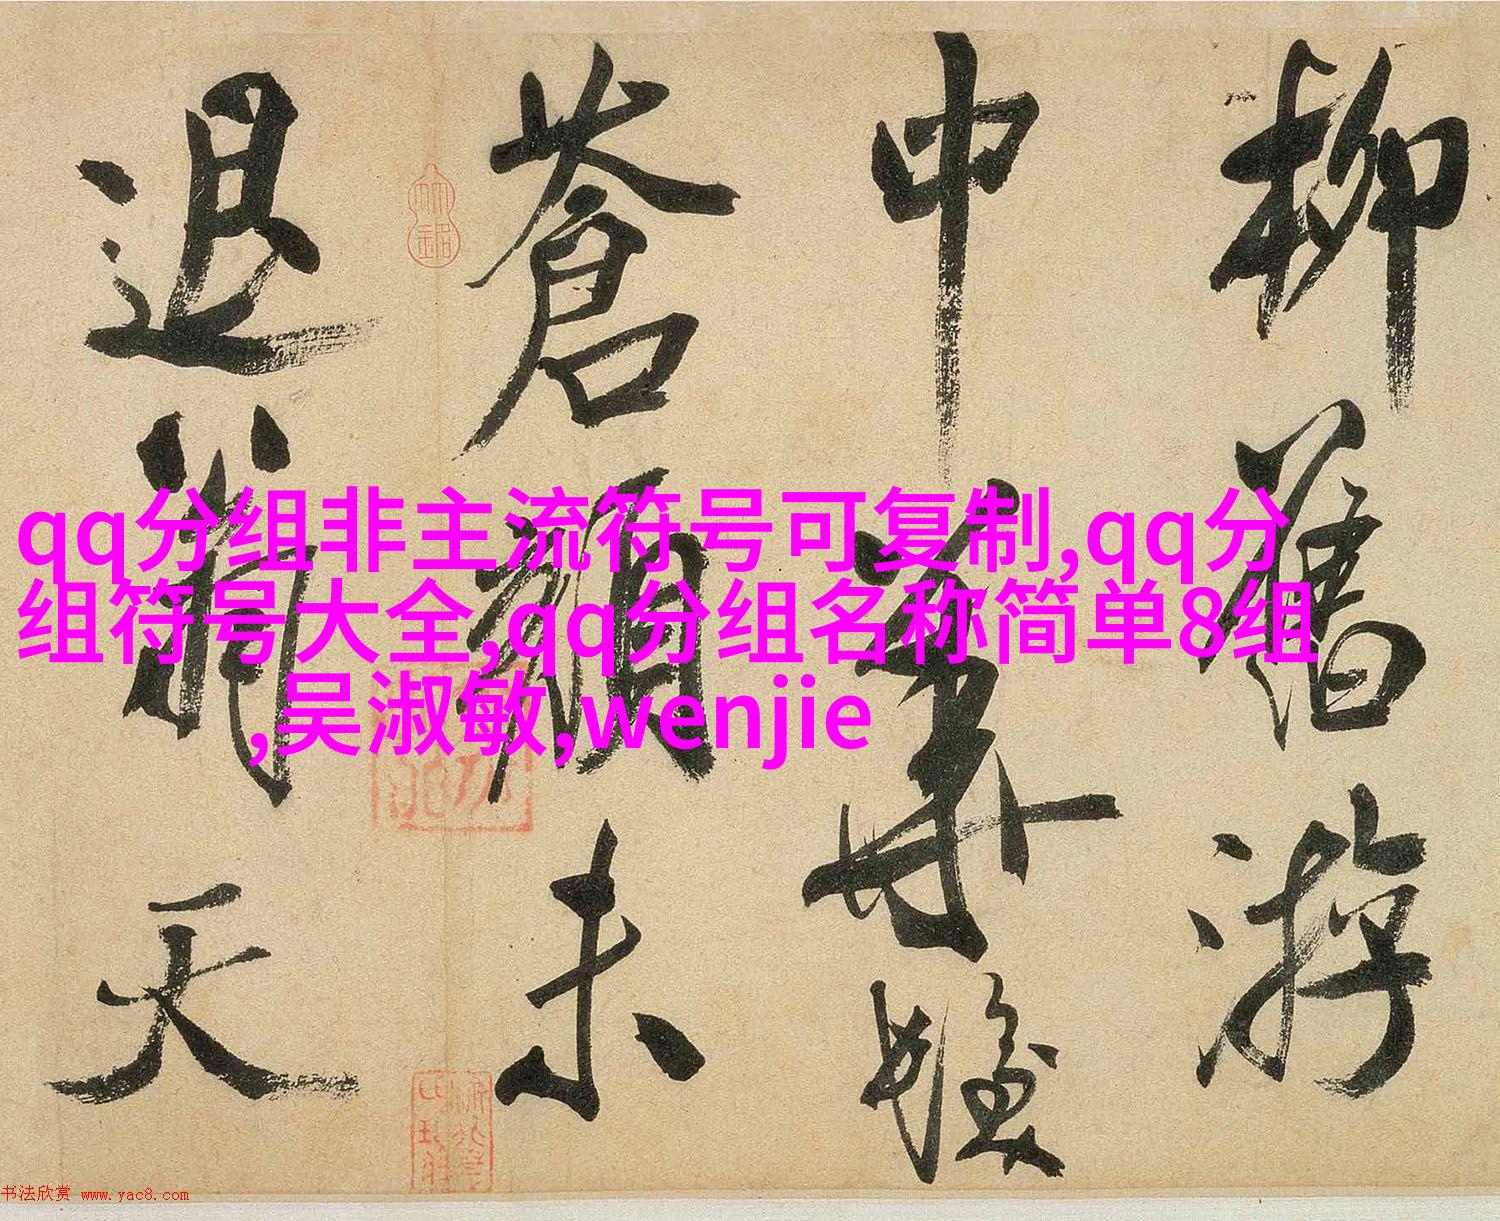 柳舊游
中華髮
蒼顏未
退翁天
qq分组非主流符号可复制,qq分
组符号大全,qq分组名称简单8组
,吴淑敏,wenjie
书法欣赏 www.yac8.com